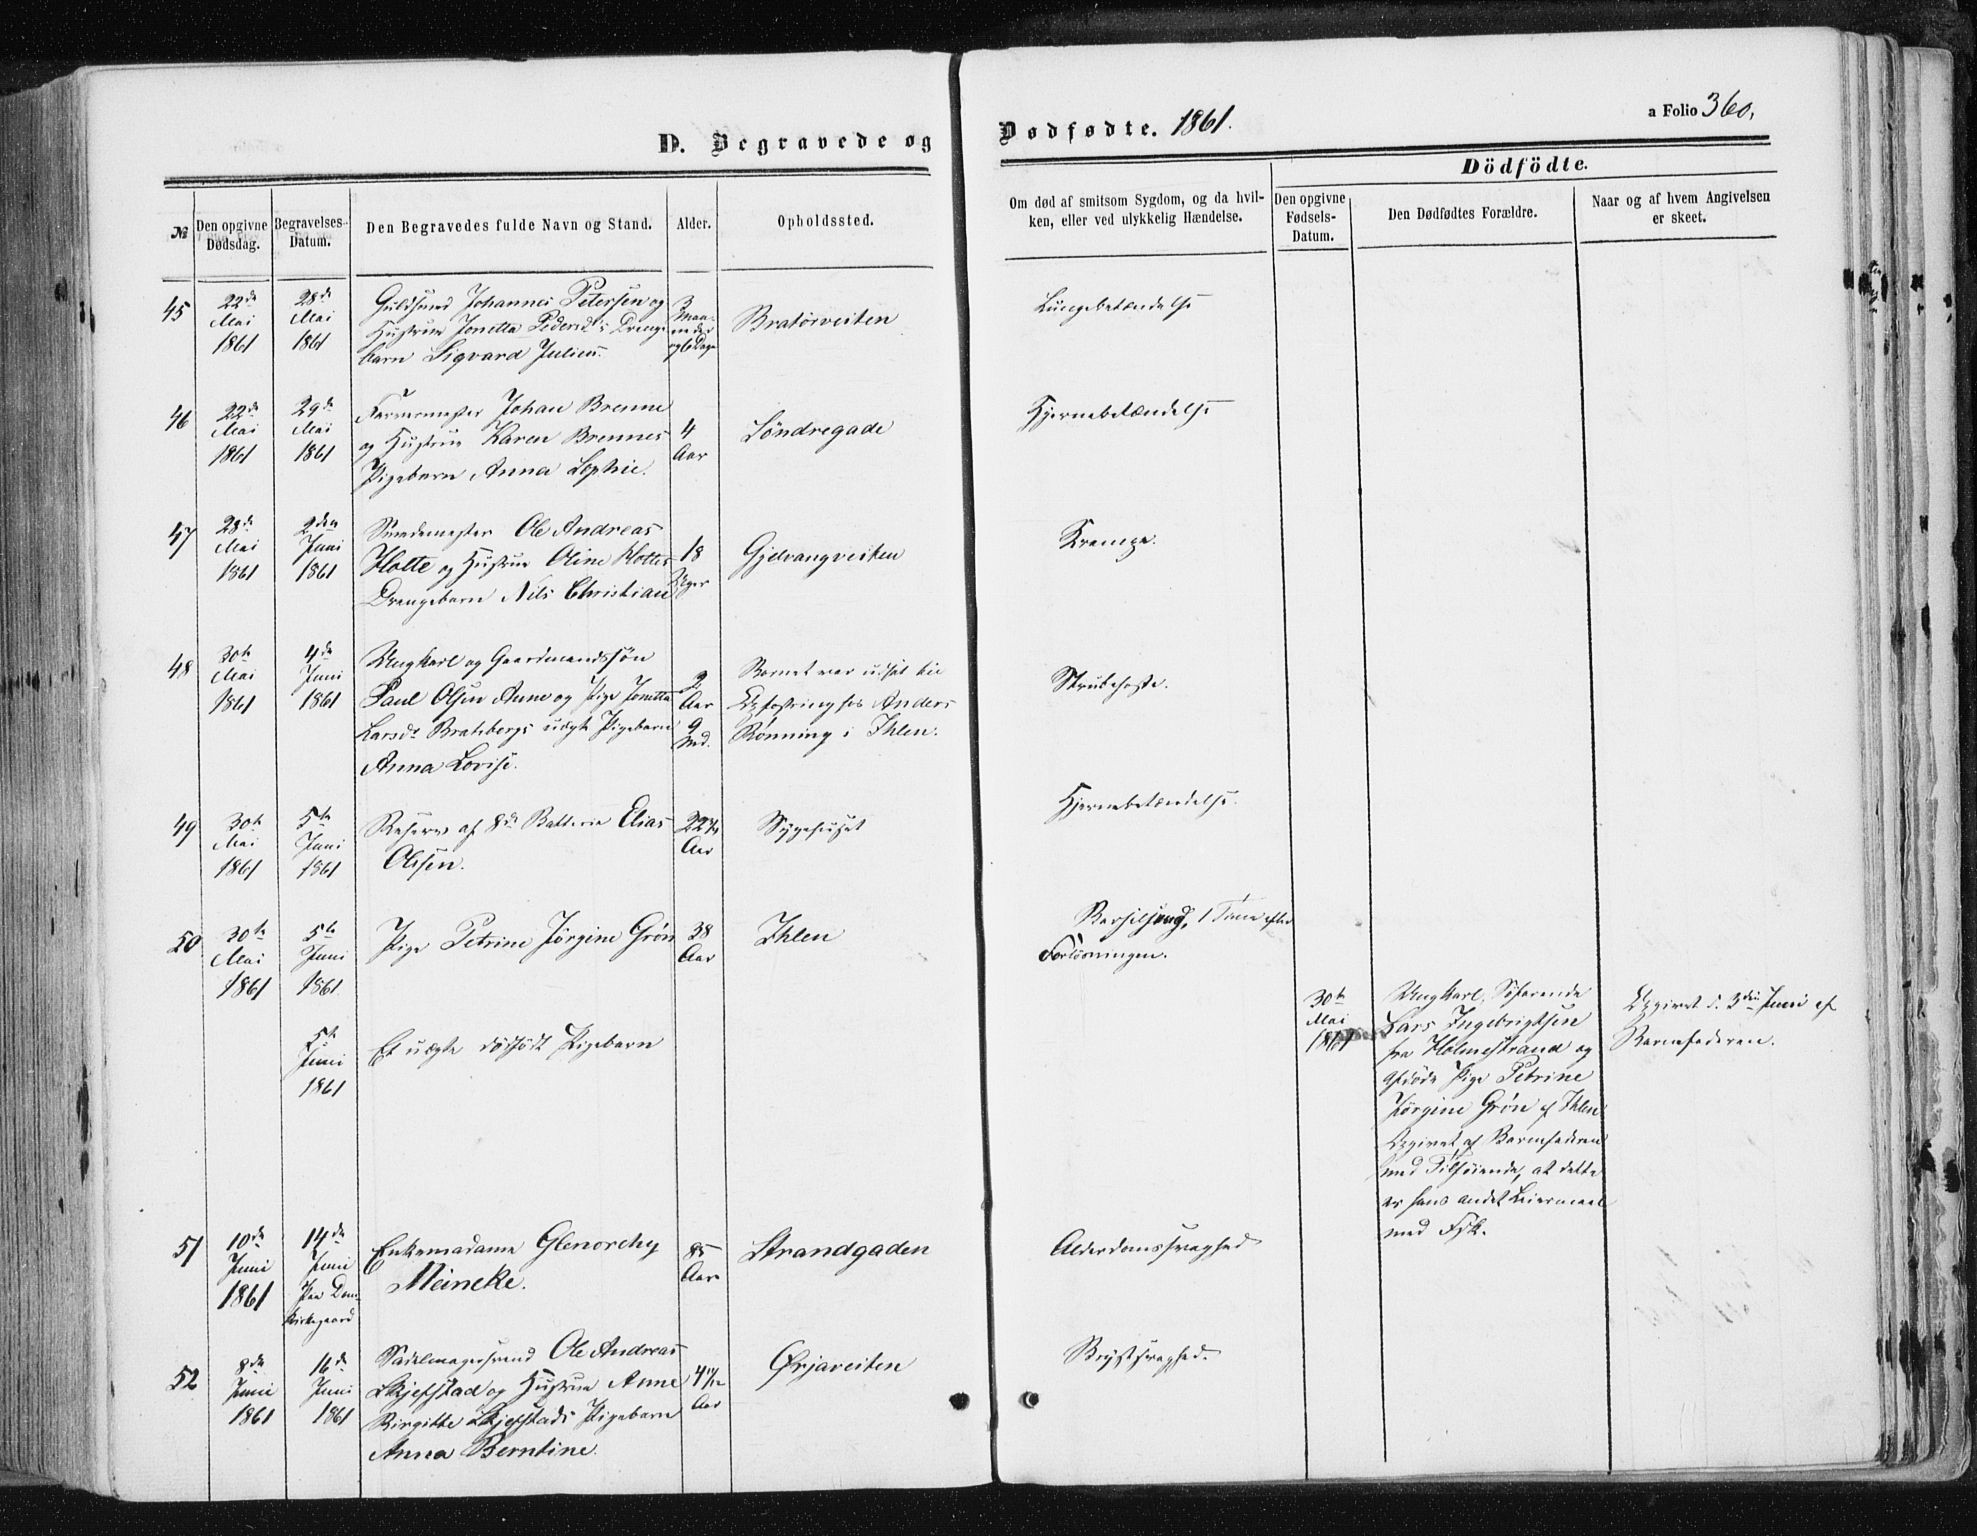 D. Begravede og Dødfødte. 1861.
a Folio 360.
№
Den opgivne Dødsdag.
Begravelses-Datum.
Den Begravedes fulde Navn og Stand.
Alder.
Opholdssted.
Om død af smitsom Sygdom, og da hvil-
ken, eller ved ulykkelig Hændelse.
Dödfödte.
Den opgivne Fødsels-Datum.
Den Dødfødtes Forældre.
Naar og af hvem Angivelsen
er skeet.
45
22de Mai 1861
28de Mai 1861
Guldsmed Johannes Petersen og
Hustru Jonetta Pedersd's Drenge
barn Sigvard Julius.
3 Maaneder og 6 Dage
Bratørveiten
Lungebetændelse
46
22de Mai 1861
29de Mai 1861
Farvermester Johan Brenne
og Hustrue Karen Brennes
Pigebarn Anna Sophie.
4 Aar
Søndregade
Hjernebetændelse
47
28de Mai 1861
2den Juni 1861
Smedemester Ole Andreas
Holte og Hustrue Oline Holtes
Drengebarn Nils Christian
18 Uger
Gjelvangveiten
Krampe.
48
30te Mai 1861
4de Juni 1861
Ungkarl og Gaardmandssøn
Paul Olsen Aune og Pige Jonetta
Larsdr Bratsbergs uægte Pigebarn
Anna Lovise.
2 Aar 9 Md.
Barnet var udsat til
Opfostring hos Anders
Rønning i Ihlen.
Strubehoste.
49
30te Mai 1861
5te Juni 1861
Reserve af 8de Batterie Elias
Olsen.
22 Aar
Sygehuset
Hjernebetændelse.
50
30te Mai 1861
5te Juni 1861.
Pige Petrine Jørgine Grøn
38 Aar
Ihlen
Barselseng, 1 Time efter
Forløsningen.
5te Juni 1861
Et uægte dødfødt Pigebarn
30te Mai 1861
Ungkarl, Søfarende
Lars Ingebrigtsen
fra Holmestrand og
afdøde Pige Petrine
Jørgine Grøn af Ihlen
Opgivet af Barnefaderen
med Tilføiende, at dette
er hans andet Leiermaal
med Fsk.
Opgivet d. 3die Juni af
Barnefaderen.
51
10de Juni 1861
14de Juni
Paa Dom-
kirkegaard
Enkemadame Glenorchy
Meincke.
85 Aar
Strandgaden
Alderdomssvaghed
52
8de Juni 1861
16de Juni 1861
Sadelmagersvend Ole Andreas
Skjefstad og Hustrue Anne
Birgitte Skjefstads Pigebarn
Anna Berntine.
4 11/12 Aar
Ørjaveiten
Brystsvaghed.